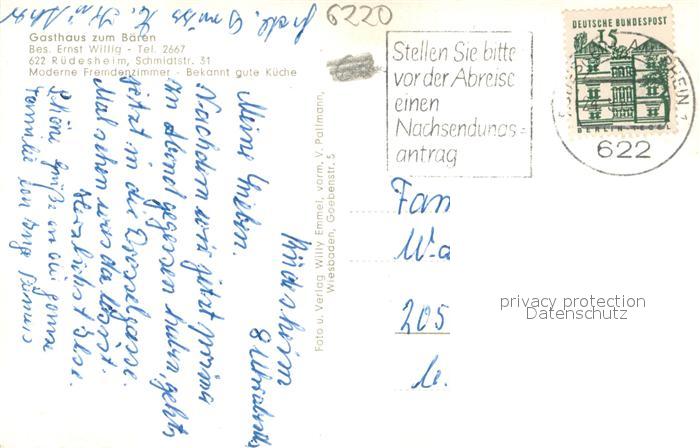 6220
Gasthaus zum Bären
Bes. Ernst Willig - Tel. 2667
622 Rüdesheim, Schmidtstr. 31
Moderne Fremdenzimmer - Bekannt gute Küche
Stellen Sie bitte
vor der Abreise
einen
Nachsendungs=
antrag
DEUTSCHE BUNDESPOST
15
BERLIN-TEGEL
622
Foto u. Verlag Willy Emmel, vorm. V. Pallmann,
Wiesbaden, Goebenstr. 5
Rüdesheim
8 Uhr abends
Meine Lieben.
Nachdem wir jetzt prima
an Abend gegessen haben, gehts
jetzt in die Drosselgasse.
Mal sehen was da
Herzlichst
Schöne Grüße an die ganze
Familie von
Fam
205
privacy protection
Datenschutz